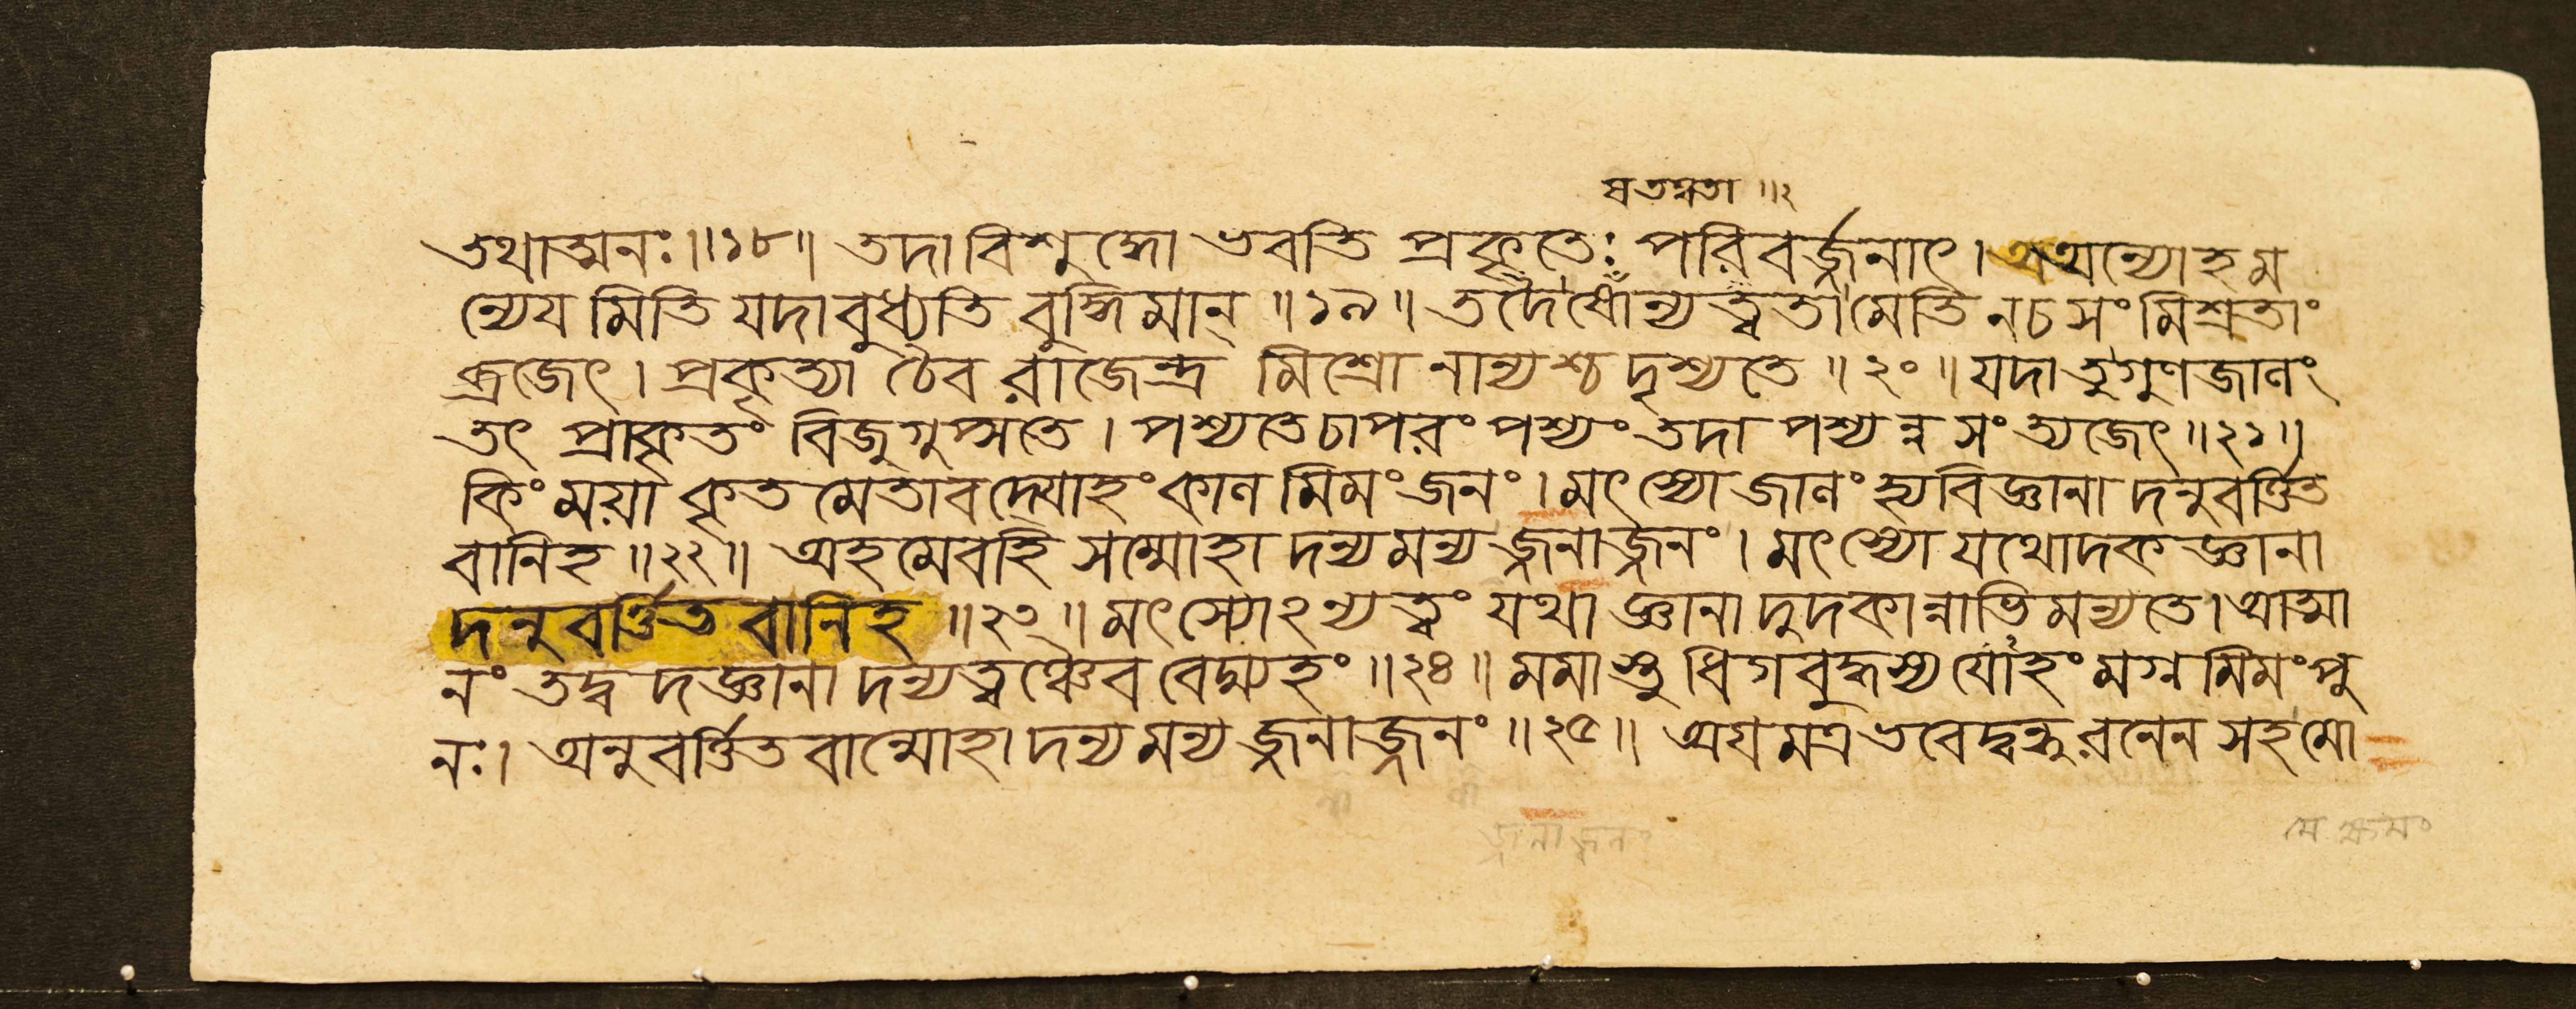 তথাত্মনঃ॥১৮॥ তদা বিশুদ্ধো ভবতি প্রকৃতেঃ পরিবর্জ্জনাৎ। অন্যোহম
ন্যেয মিতি যদা বুধ্যতি বুদ্ধিমান্ ॥১৯॥ তদৈষোন্যত্বতামেতি নচ সংমিশ্রতাং
ব্রজেৎ। প্রকৃত্যা চৈব রাজেন্দ্র মিশ্রো নান্যশ্চ দৃশ্যতে ॥২০॥ যদা তু গুণজালং
তৎ প্রাকৃতং বিজুগুপ্সতে। পশ্যতে চাপরং পশ্যং তদা পশ্যন্ন সংত্যজেৎ ॥২১॥
কিং ময়া কৃত মেতাবদ্যোহং কাল মিমং জনং। মৎস্যো জালং হ্যবিজ্ঞানা দনুবর্ত্তিত
বানিহ ॥২২॥ অহমেবহি সম্মোহা দন্যমন্য জ্জনাজ্জনং। মৎস্যো যথোদক জ্ঞানা
দনুবর্ত্তিত বানিহ ॥২৩॥ মৎস্যোঽন্যত্বং যথা জ্ঞানা দুদকান্নাভিমন্যতে। আত্মা
নং তদ্ব দজ্ঞানা দন্যত্বঞ্চৈব বেদ্ম্যহং ॥২৪॥ মমাস্তু ধিগবুদ্ধস্য যোহং মগ্ন মিমং পু
নঃ। অনুবর্ত্তিত বান্মোহা দন্যমন্য জ্জনাজ্জনং ॥২৫॥ অয মত্র ভবেদ্বন্ধু রনেন সহ মো
মে ক্ষমং
জ্জনাজ্জনং